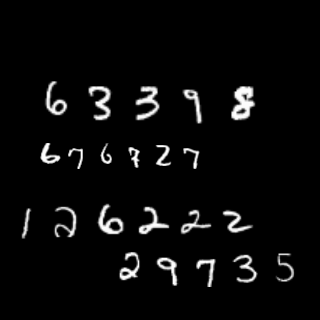 6 3 3 9 8
6 7 6 7 2 7
1 2 6 2 2 2
2 9 7 3 5